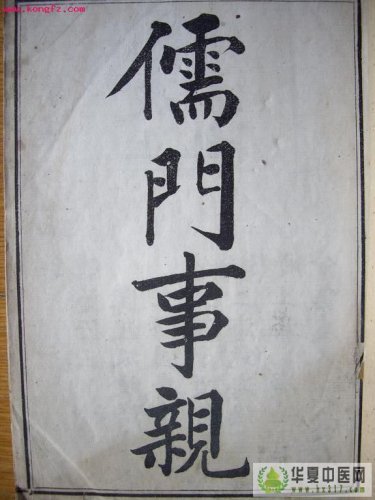 www.kongfz.com
儒門事親
华夏中医网
www.hx517.com